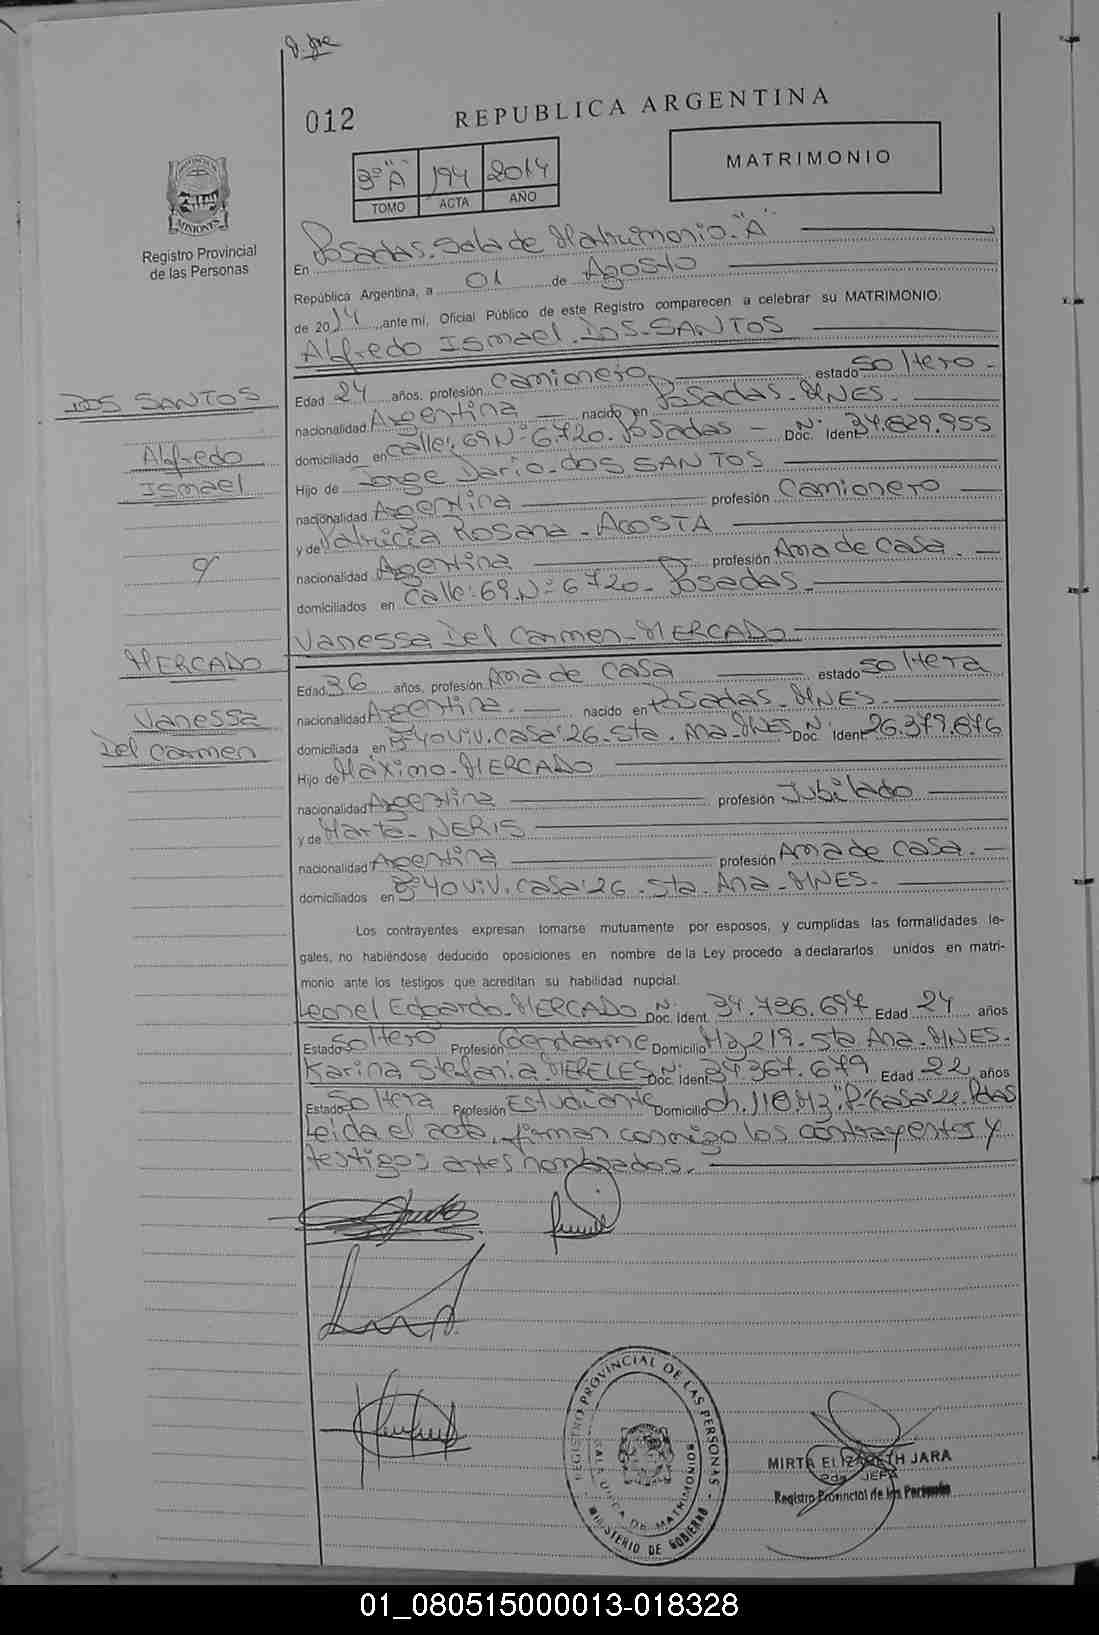 012
REPUBLICA ARGENTINA
3º "A" 194 2014
TOMO ACTA AÑO
MATRIMONIO
PROVINCIA
MISIONES
Registro Provincial
de las Personas
En Posadas. Sala de Matrimonio. "A"
República Argentina, a 01 de Agosto
de 2014, ante mi, Oficial Público de este Registro comparecen a celebrar su MATRIMONIO:
Alfredo Ismael. DOS-SANTOS
DOS SANTOS
Alfredo
Ismael
Edad 24 años, profesión Camionero estado Soltero -
nacionalidad Argentina nacido en Posadas. MNES.
domiciliado en calle: 69 Nº 6.720. Posadas - Nº Doc. Ident 34.829.955
Hijo de Jorge Dario. DOS SANTOS
nacionalidad Argentina profesión Camionero
y de Patricia Rosana - ACOSTA
nacionalidad Argentina profesión Ama de casa.
domiciliados en Calle: 69. Nº 6720- Posadas.
Vanessa Del Carmen-MERCADO
y
MERCADO
Vanessa
Del Carmen
Edad 36 años, profesión Ama de casa estado Soltera
nacionalidad Argentina. nacido en Posadas. MNES.
domiciliada en Bº 40 viv. casa: 26. Sta. Ana. MNES Nº Doc. Ident 26.379.676
Hijo de Máximo-MERCADO
nacionalidad Argentina profesión Jubilado
y de Marta- NERIS
nacionalidad Argentina profesión Ama de casa.
domiciliados en Bº 40 viv. casa: 26. Sta. Ana - MNES.
Los contrayentes expresan tomarse mutuamente por esposos, y cumplidas las formalidades le-
gales, no habiéndose deducido oposiciones en nombre de la Ley procedo a declararlos unidos en matri-
monio ante los testigos que acreditan su habilidad nupcial.
Leonel Edgardo-MERCADO Nº Doc. Ident. 34.736.697 Edad 24 años
Estado Soltero Profesión Gendarme Domicilio Mz 219. Sta Ana. MNES.
Karina Stefania. MERELES Nº Doc. Ident 37.367.679 Edad 22 años
Estado Soltera Profesión Estudiante Domicilio Ch. 110
Leida el acta, firman conmigo los contrayentes y
testigos antes nombrados.
REGISTRO PROVINCIAL DE LAS PERSONAS
SALA UNICA DE MATRIMONIOS
- MINISTERIO DE GOBIERNO -
MIRTA ELIZABETH JARA
2da. JEFA
Registro Provincial de las Personas
01_080515000013-018328